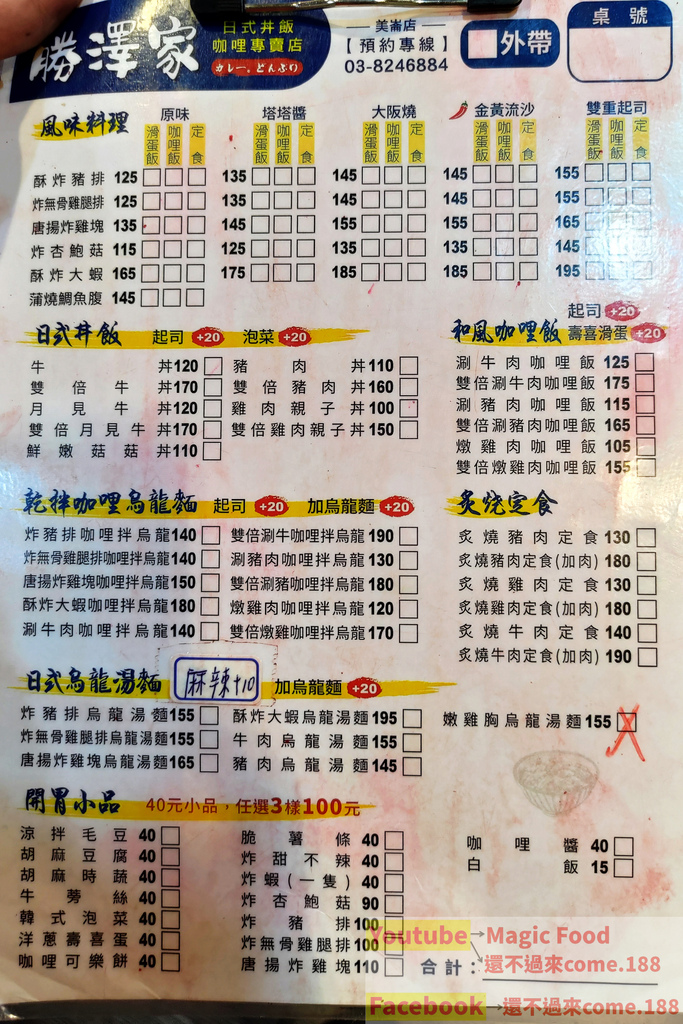 勝澤家
日式丼飯
咖哩專賣店
カレー。どんぶり
— 美崙店 —
【預約專線】
03-8246884
外帶
桌號
風味料理
原味 塔塔醬 大阪燒 金黃流沙 雙重起司
滑蛋飯 咖哩飯 定食 滑蛋飯 咖哩飯 定食 滑蛋飯 咖哩飯 定食 滑蛋飯 咖哩飯 定食 滑蛋飯 咖哩飯 定食
酥炸豬排 125 135 145 145 155
炸無骨雞腿排 125 135 145 145 155
唐揚炸雞塊 135 145 155 155 165
炸杏鮑菇 115 125 135 135 145
酥炸大蝦 165 175 185 185 195
蒲燒鯛魚腹 145
日式丼飯 起司 +20 泡菜 +20
牛丼120 豬肉丼110
雙倍牛丼170 雙倍豬肉丼160
月見牛丼120 雞肉親子丼100
雙倍月見牛丼170 雙倍雞肉親子丼150
鮮嫩菇菇丼110
起司 +20
和風咖哩飯 壽喜滑蛋 +20
涮牛肉咖哩飯 125
雙倍涮牛肉咖哩飯 175
涮豬肉咖哩飯 115
雙倍涮豬肉咖哩飯 165
燉雞肉咖哩飯 105
雙倍燉雞肉咖哩飯 155
乾拌咖哩烏龍麵 起司 +20 加烏龍麵 +20
炸豬排咖哩拌烏龍140 雙倍涮牛咖哩拌烏龍 190
炸無骨雞腿排咖哩拌烏龍140 涮豬肉咖哩拌烏龍 130
唐揚炸雞塊咖哩拌烏龍150 雙倍涮豬咖哩拌烏龍 180
酥炸大蝦咖哩拌烏龍180 燉雞肉咖哩拌烏龍 120
涮牛肉咖哩拌烏龍140 雙倍燉雞咖哩拌烏龍 170
炙燒定食
炙燒豬肉定食 130
炙燒豬肉定食(加肉) 180
炙燒雞肉定食 130
炙燒雞肉定食(加肉) 180
炙燒牛肉定食 140
炙燒牛肉定食(加肉) 190
日式烏龍湯麵 麻辣+10 加烏龍麵 +20
炸豬排烏龍湯麵155 酥炸大蝦烏龍湯麵195 嫩雞胸烏龍湯麵155
炸無骨雞腿排烏龍湯麵155 牛肉烏龍湯麵155
唐揚炸雞塊烏龍湯麵165 豬肉烏龍湯麵145
開胃小品 40元小品，任選3樣100元
涼拌毛豆 40 脆薯條 40 咖哩醬 40
胡麻豆腐 40 炸甜不辣 40 白飯 15
胡麻時蔬 40 炸蝦(一隻) 40
牛蒡絲 40 炸杏鮑菇 90
韓式泡菜 40 炸豬排100
洋蔥壽喜蛋 40 炸無骨雞腿排100
咖哩可樂餅 40 唐揚炸雞塊110
合計：
Youtube→Magic Food
→還不過來come.188
Facebook→還不過來come.188